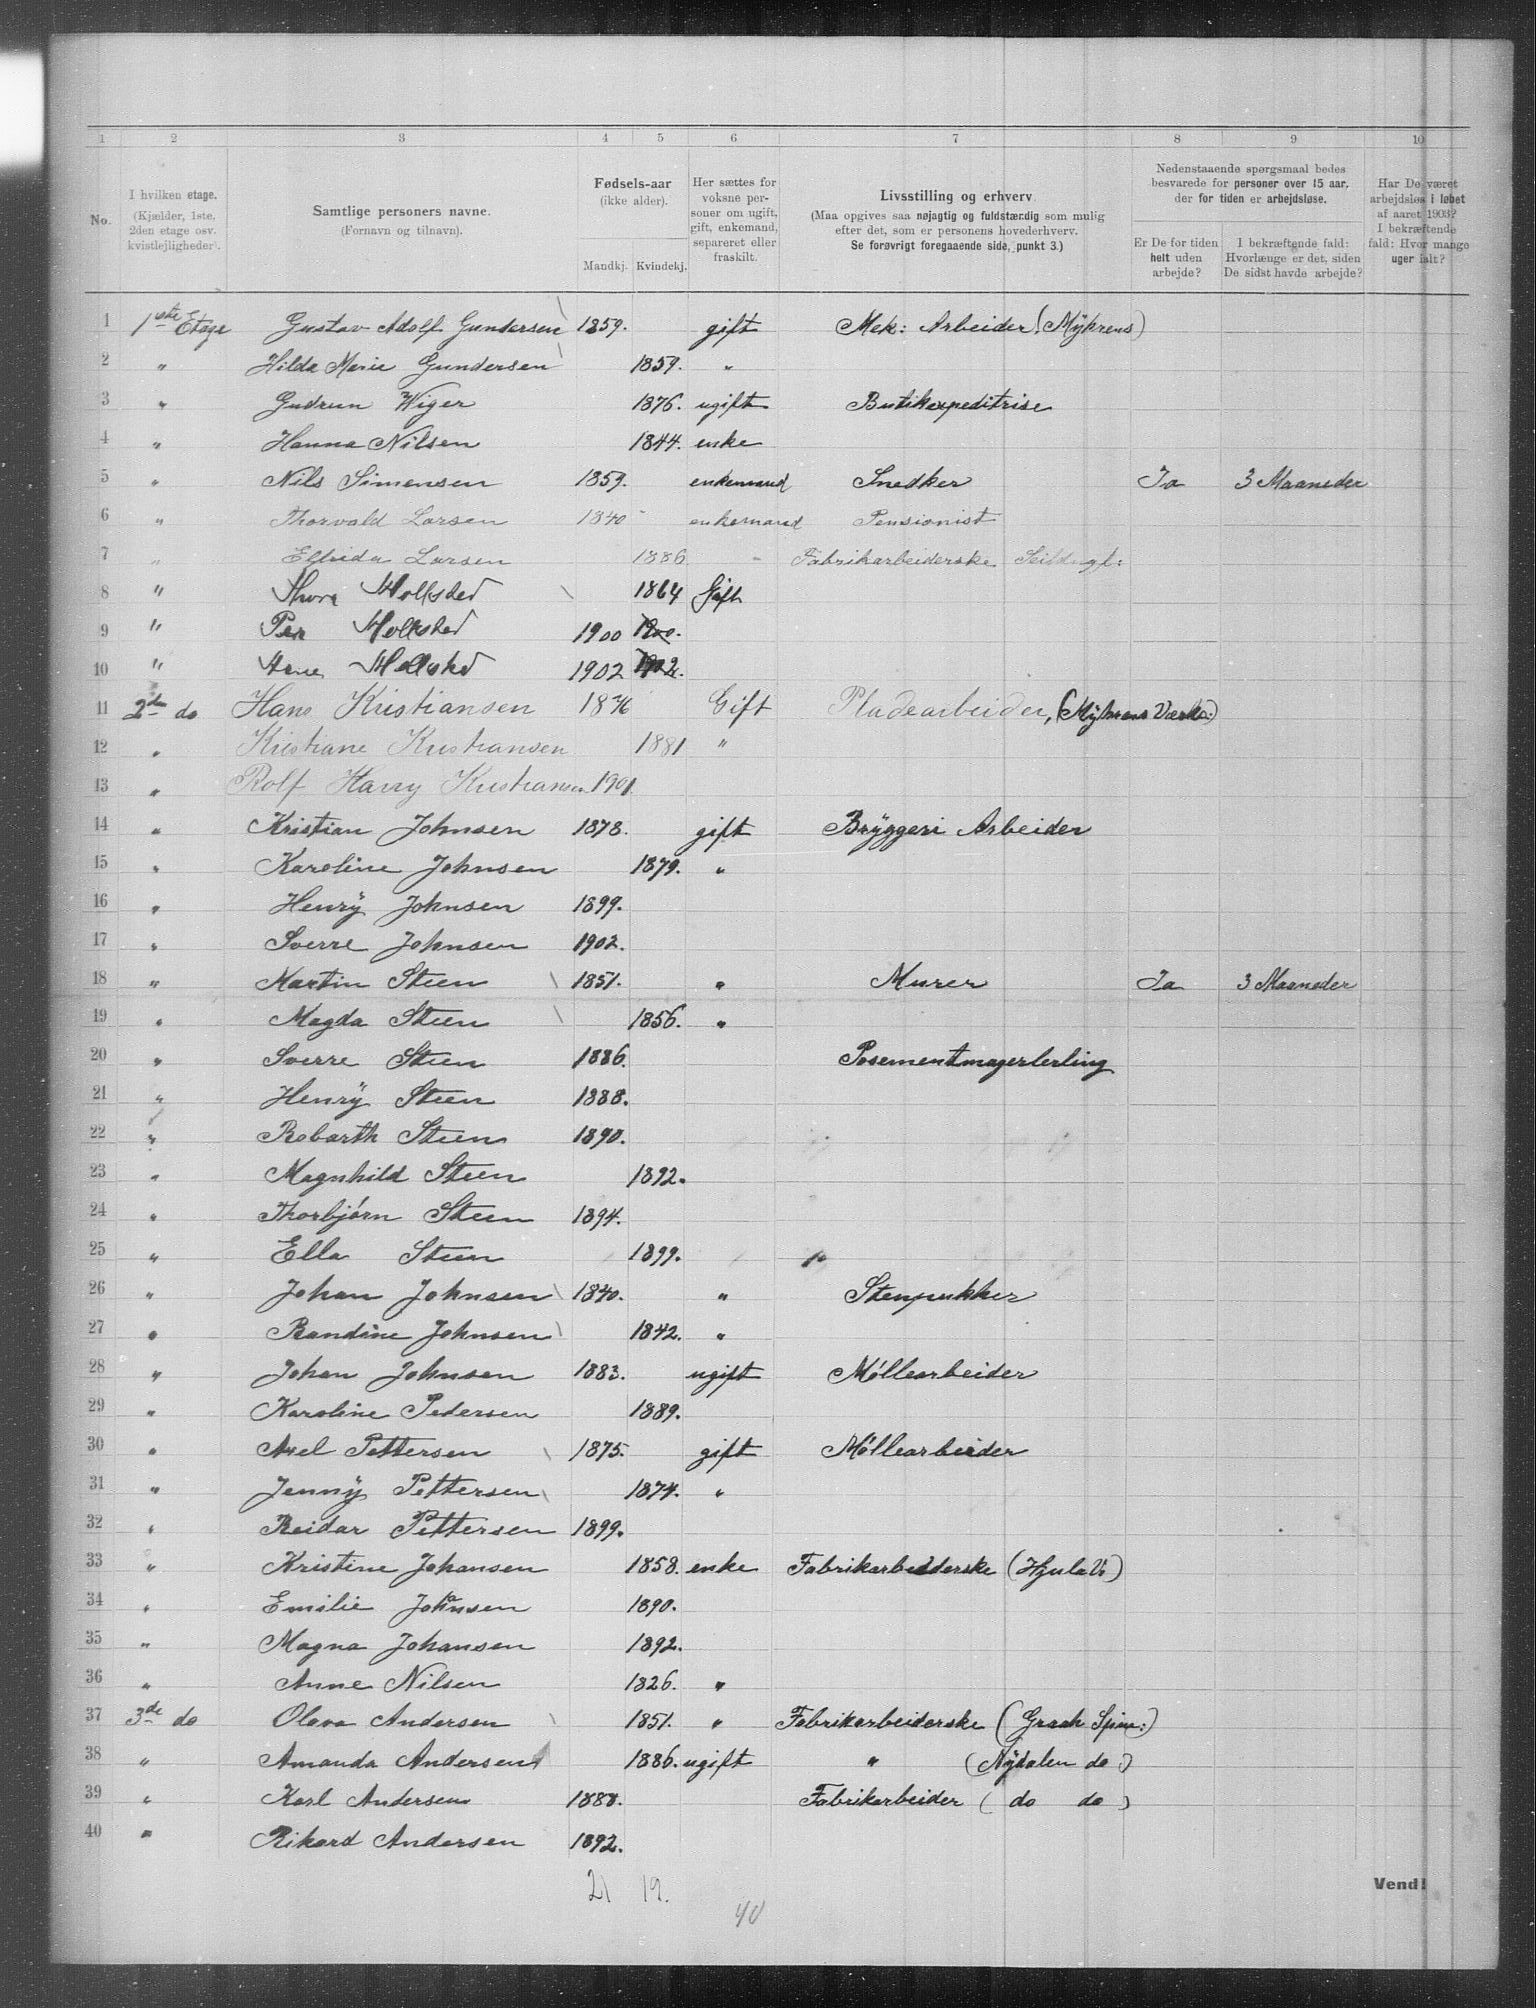 1 2 3 4 5 6 7 8 9 10
No.
I hvilken etage. (Kjælder, 1ste, 2den etage osv. kvistlejligheder).
Samtlige personers navne. (Fornavn og tilnavn).
Fødsels-aar (ikke alder). Mandkj. Kvindekj.
Her sættes for voksne personer om ugift, gift, enkemand, separeret eller fraskilt.
Livsstilling og erhverv. (Maa opgives saa nøjagtig og fuldstændig som mulig efter det, som er personens hovederhverv. Se forøvrigt foregaaende side, punkt 3.)
Nedenstaaende spørgsmaal bedes besvarede for personer over 15 aar, der for tiden er arbejdsløse.
Er De for tiden helt uden arbejde?
I bekræftende fald: Hvorlænge er det, siden De sidst havde arbejde?
Har De været arbejdsløs i løbet af aaret 1903? I bekræftende fald: Hvor mange uger ialt?
1 1ste Etage Gustav Adolf Gundersen 1859. gift Mek: Arbeider (Myhrens)
2 " Hilda Marie Gundersen 1859. "
3 " Gudrun Wiger 1876. ugift Butikexpeditrise
4 " Hanna Nilsen 1844. enke
5 " Nils Simensen 1859. enkemand Snedker Ja 3 Maaneder
6 " Thorvald Larsen 1840 enkemand Pensionist
7 " Ellida Larsen 1886 " Fabrikarbeiderske Seildugf:
8 " Thora 1864 Gift
9 " Per 1900 1900.
10 " Arne 1902 1902.
11 2den do Hans Kristiansen 1876 Gift Pladearbeider, (Myhrens Værks:)
12 " Kristiane Kristiansen 1881 "
13 " Rolf Harry Kristiansen 1901
14 " Kristian Johnsen 1878. gift Bryggeri Arbeider
15 " Karoline Johnsen 1879. "
16 " Henrÿ Johnsen 1899.
17 " Sverre Johnsen 1902.
18 " Martin Steen 1851. " Murer Ja 3 Maaneder
19 " Magda Steen 1856. "
20 " Sverre Steen 1886. Posementmagerlerling
21 " Henrÿ Steen 1888.
22 " Robarth Steen 1890.
23 " Magnhild Steen 1892.
24 " Thorbjørn Steen 1894.
25 " Ella Steen 1899.
26 " Johan Johnsen 1840. " Stenpukker
27 " Randine Johnsen 1842. "
28 " Johan Johnsen 1883. ugift Møllearbeider
29 " Karoline Pedersen 1889.
30 " Axel Pettersen 1875. gift Møllearbeider
31 " Jennÿ Pettersen 1874. "
32 " Reidar Pettersen 1899.
33 " Kristine Johansen 1858. enke Fabrikarbeiderske (Hjula V:)
34 " Emilie Johansen 1890.
35 " Magna Johansen 1892.
36 " Anne Nilsen 1826. "
37 3de do Olava Andersen 1851. " Fabrikarbeiderske (Graah Spin:)
38 " Amanda Andersen 1886. ugift " (Nÿdalen do)
39 " Karl Andersen 1888. Fabrikarbeider (do do)
40 " Rikard Andersen 1892.
21 19.
40
Vend!